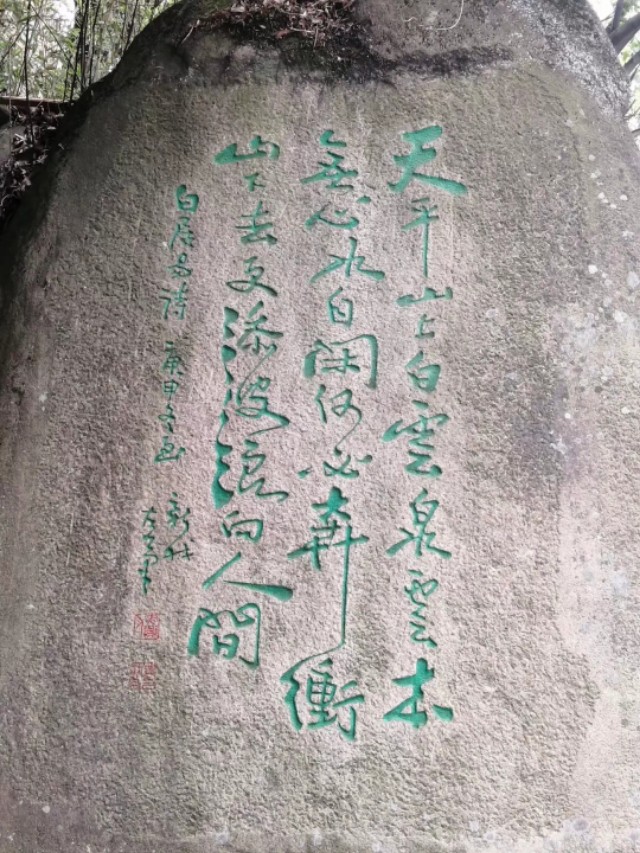 天平山上白雲泉雲本
無心水自閑何必奔衝
山下去更添波浪向人間
白居易詩 庚申冬